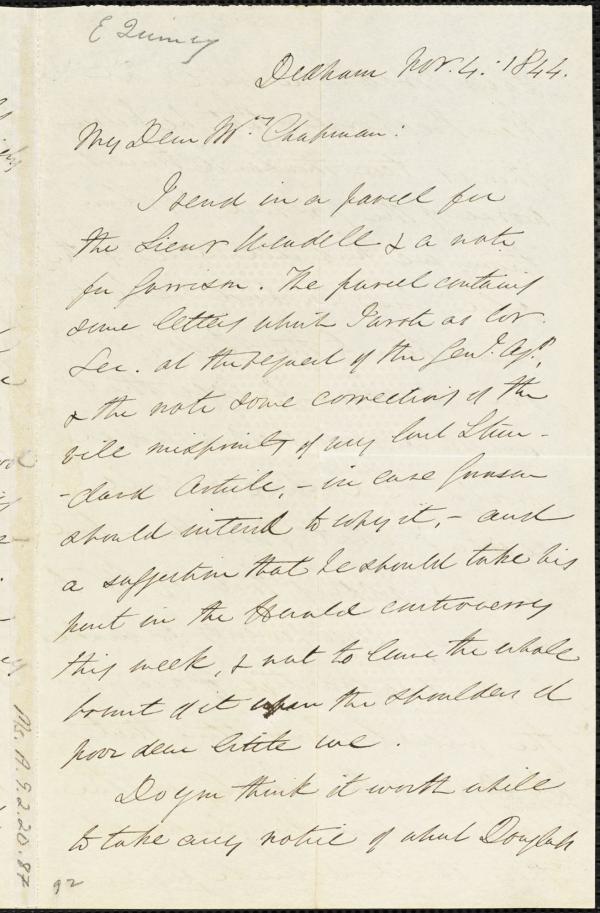 E Quincy
Dedham Nov. 4. 1844.
My Dear Mrs Chapman:
I send in a parcel for
the Wendell & a note
for Garrison. The parcel contains
some letters which I wrote as Cor.
Sec. at the request of the Genl. Agt.,
& the note some corrections of the
vile misprints of my last Stan-
-dard Article, - in case Garrison
should intend to copy it, - and
a suggestion that he should take his
part in the Herald controversy
this week, & not to leave the whole
brunt of it upon the shoulders of
poor dear little me.
Do you think it worth while
to take any notice of what Douglass
92
Ms. A.9.2.20.87